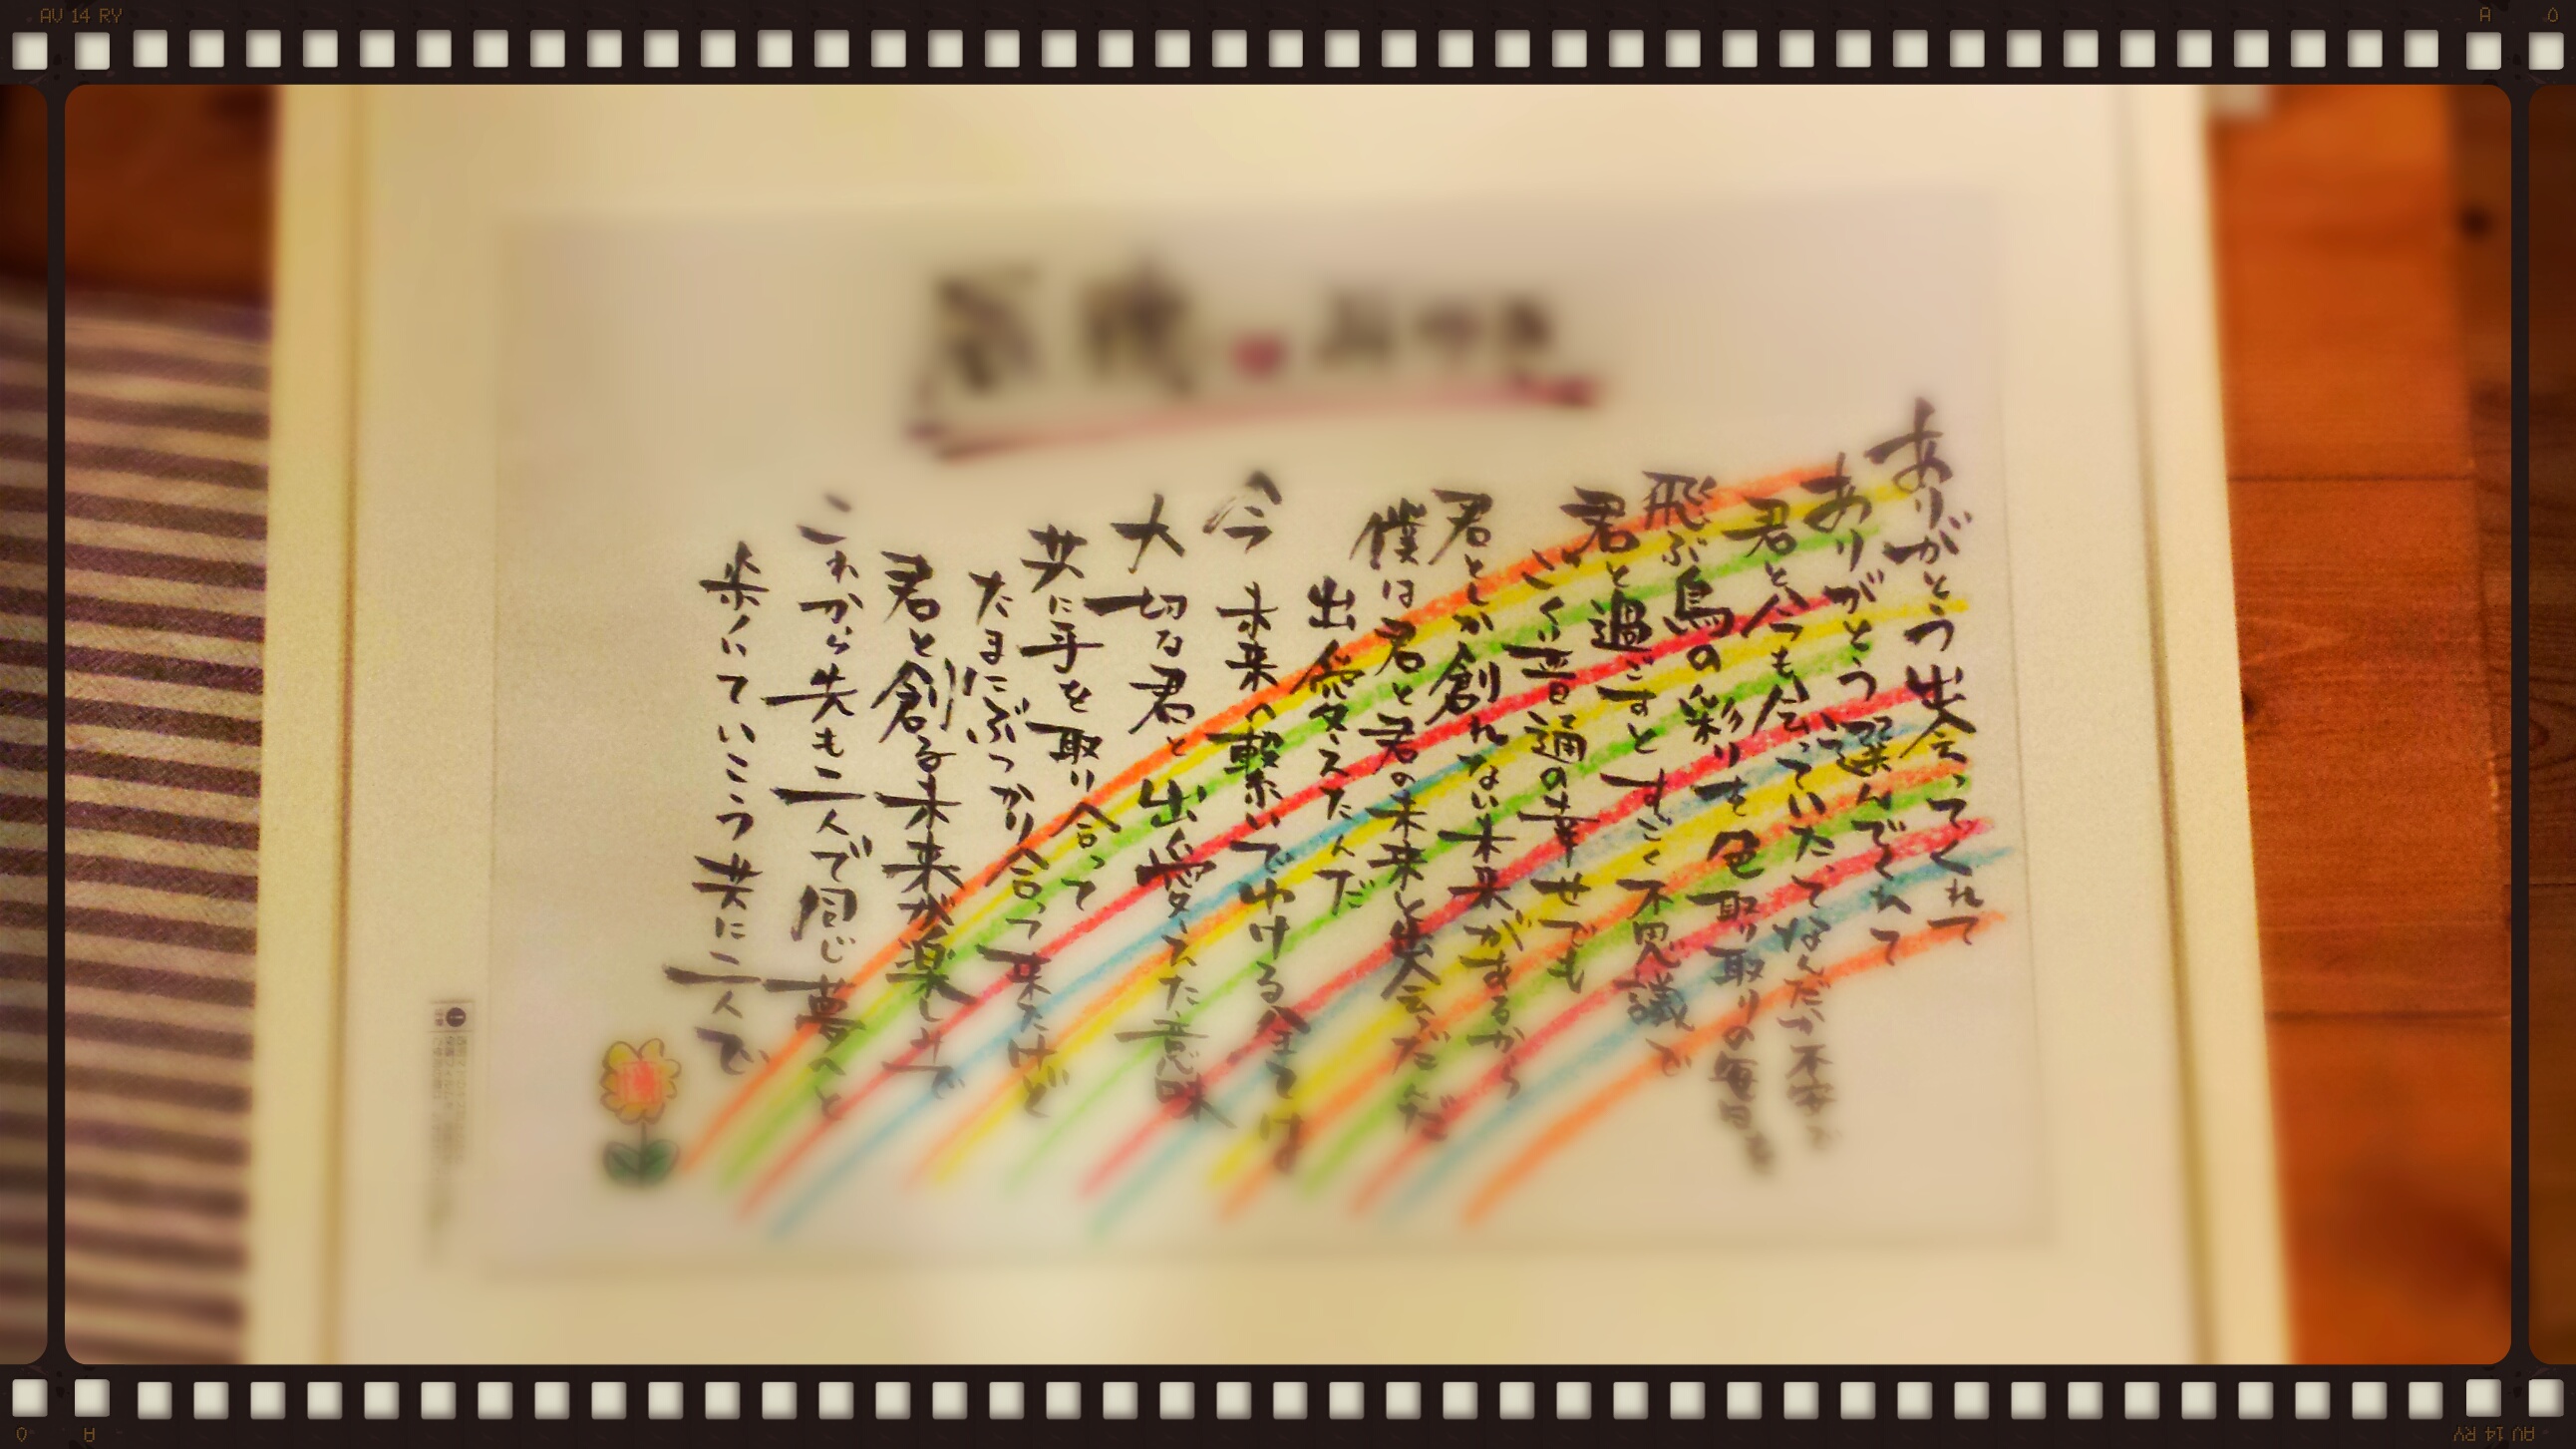 ありがとう 出会ってくれて
ありがとう 選んでくれて
君と今も会っていたってなんだか不安で
飛ぶ鳥の彩りを色取り取りの毎日を
君と過ごすとすごく不思議で
ごく普通の幸せでも
君としか創れない未来があるから
僕は君と君の未来と出会えたんだ
出愛えたんだ
今 未来へ繋いでゆける全ては
大切な君と出愛えた意味
共に手を取り合って
たまにぶつかり合って来たけど
君と創る未来が楽しみで
これから先も二人で同じ夢へと
歩いていこう共に二人で
AV 14 RY
A
0
0
A
AV 14 RY